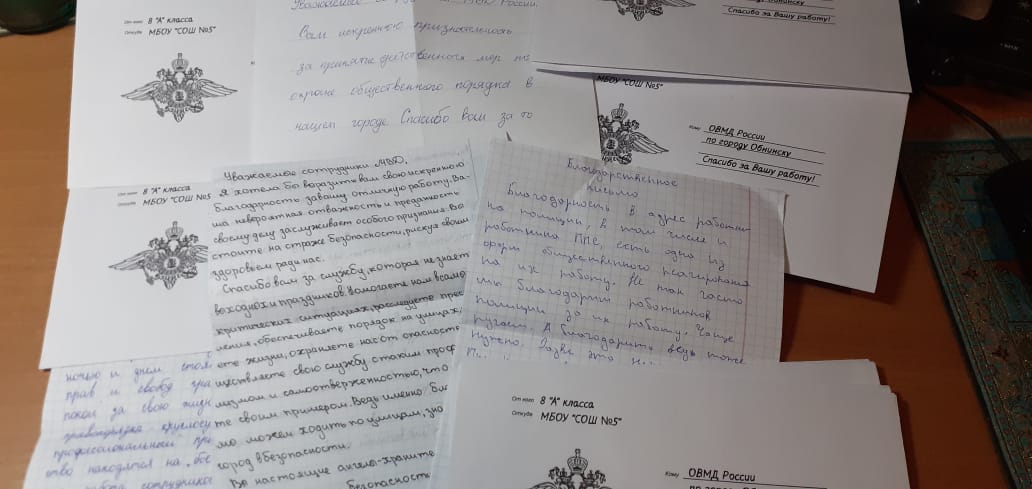 От кого 8 "А" класса
Откуда МБОУ "СОШ №5"
России.
Вам искреннюю признательность
за принятие действенных мер по
охране общественного порядка в
нашем городе. Спасибо вам за то
Спасибо за Вашу работу!
МБОУ "СОШ №5"
Кому ОВМД России
по городу Обнинску
Спасибо за Вашу работу!
8 "А" класса
Откуда МБОУ "СОШ №5
Уважаемые сотрудники МВД,
Я хотела бы выразить вам свою искреннюю
благодарность за вашу отличную работу. Ва-
ша невероятная отважность и преданность
своему делу заслуживает особого признания. Вы
стоите на страже безопасности, рискуя своим
здоровьем ради нас.
Спасибо вам за службу, которая не знает
выходных и праздников. Помогаете нам в самых
критических ситуациях, расследуете прес
ления, обеспечиваете порядок на улицах,
ете жизни, охраняете нас от опасносте
ществляете свою службу с таким проф
мизмом и самоотверженностью, что
те своим примером. Ведь именно бла
мы можем ходить по улицам, зна
город в безопасности.
Вы настоящие ангелы-храните
безопасность
Благодарственное
письмо
Благодарность в адрес работни-
ка полиции, в том числе и
работника ППС, есть одна из
форм общественного реагирования
на их работу. Не так часто
мы благодарим работников
полиции за их работу. Чаще
ругаем. А благодарить ведь тоже
нужно. Разве это
ночью и днем стоя
прав и свобод гра
покой за свою жизн
правопорядка круглосу
профессиональный пра
ство находятся на бое
работа сотрудника
От кого 8 "А" класса
Откуда МБОУ "СОШ №5"
Кому ОВМД России
по городу Обнинску